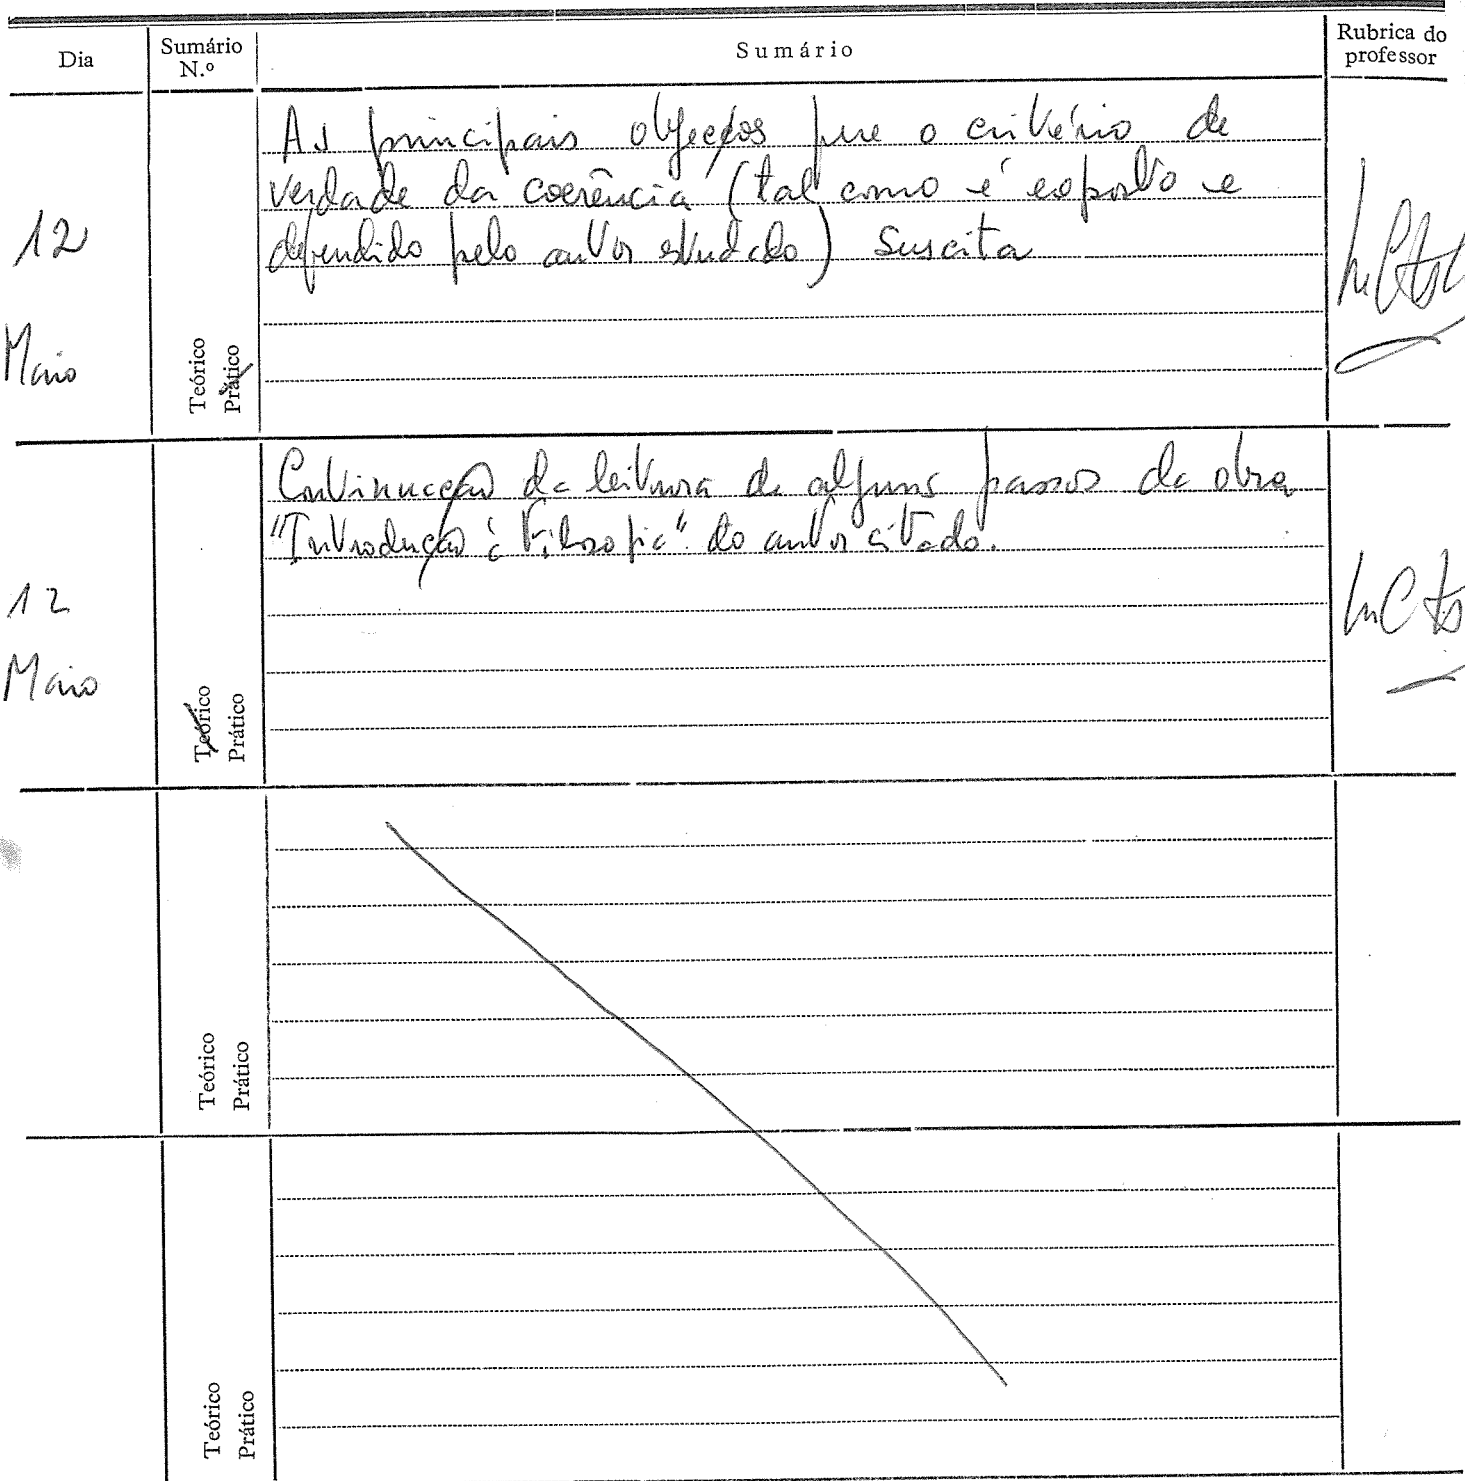 Dia
Sumário
N.º
Sumário
Rubrica do
professor
12
Maio
Teórico
Prático
As principais objecções que o critério de
verdade da coerência (tal como é exposto e
defendido pelo autor estudado) suscita
12
Maio
Teórico
Prático
Continuação da leitura de alguns passos da obra
"Introdução à Filosofia" do autor citado.
Teórico
Prático
Teórico
Prático